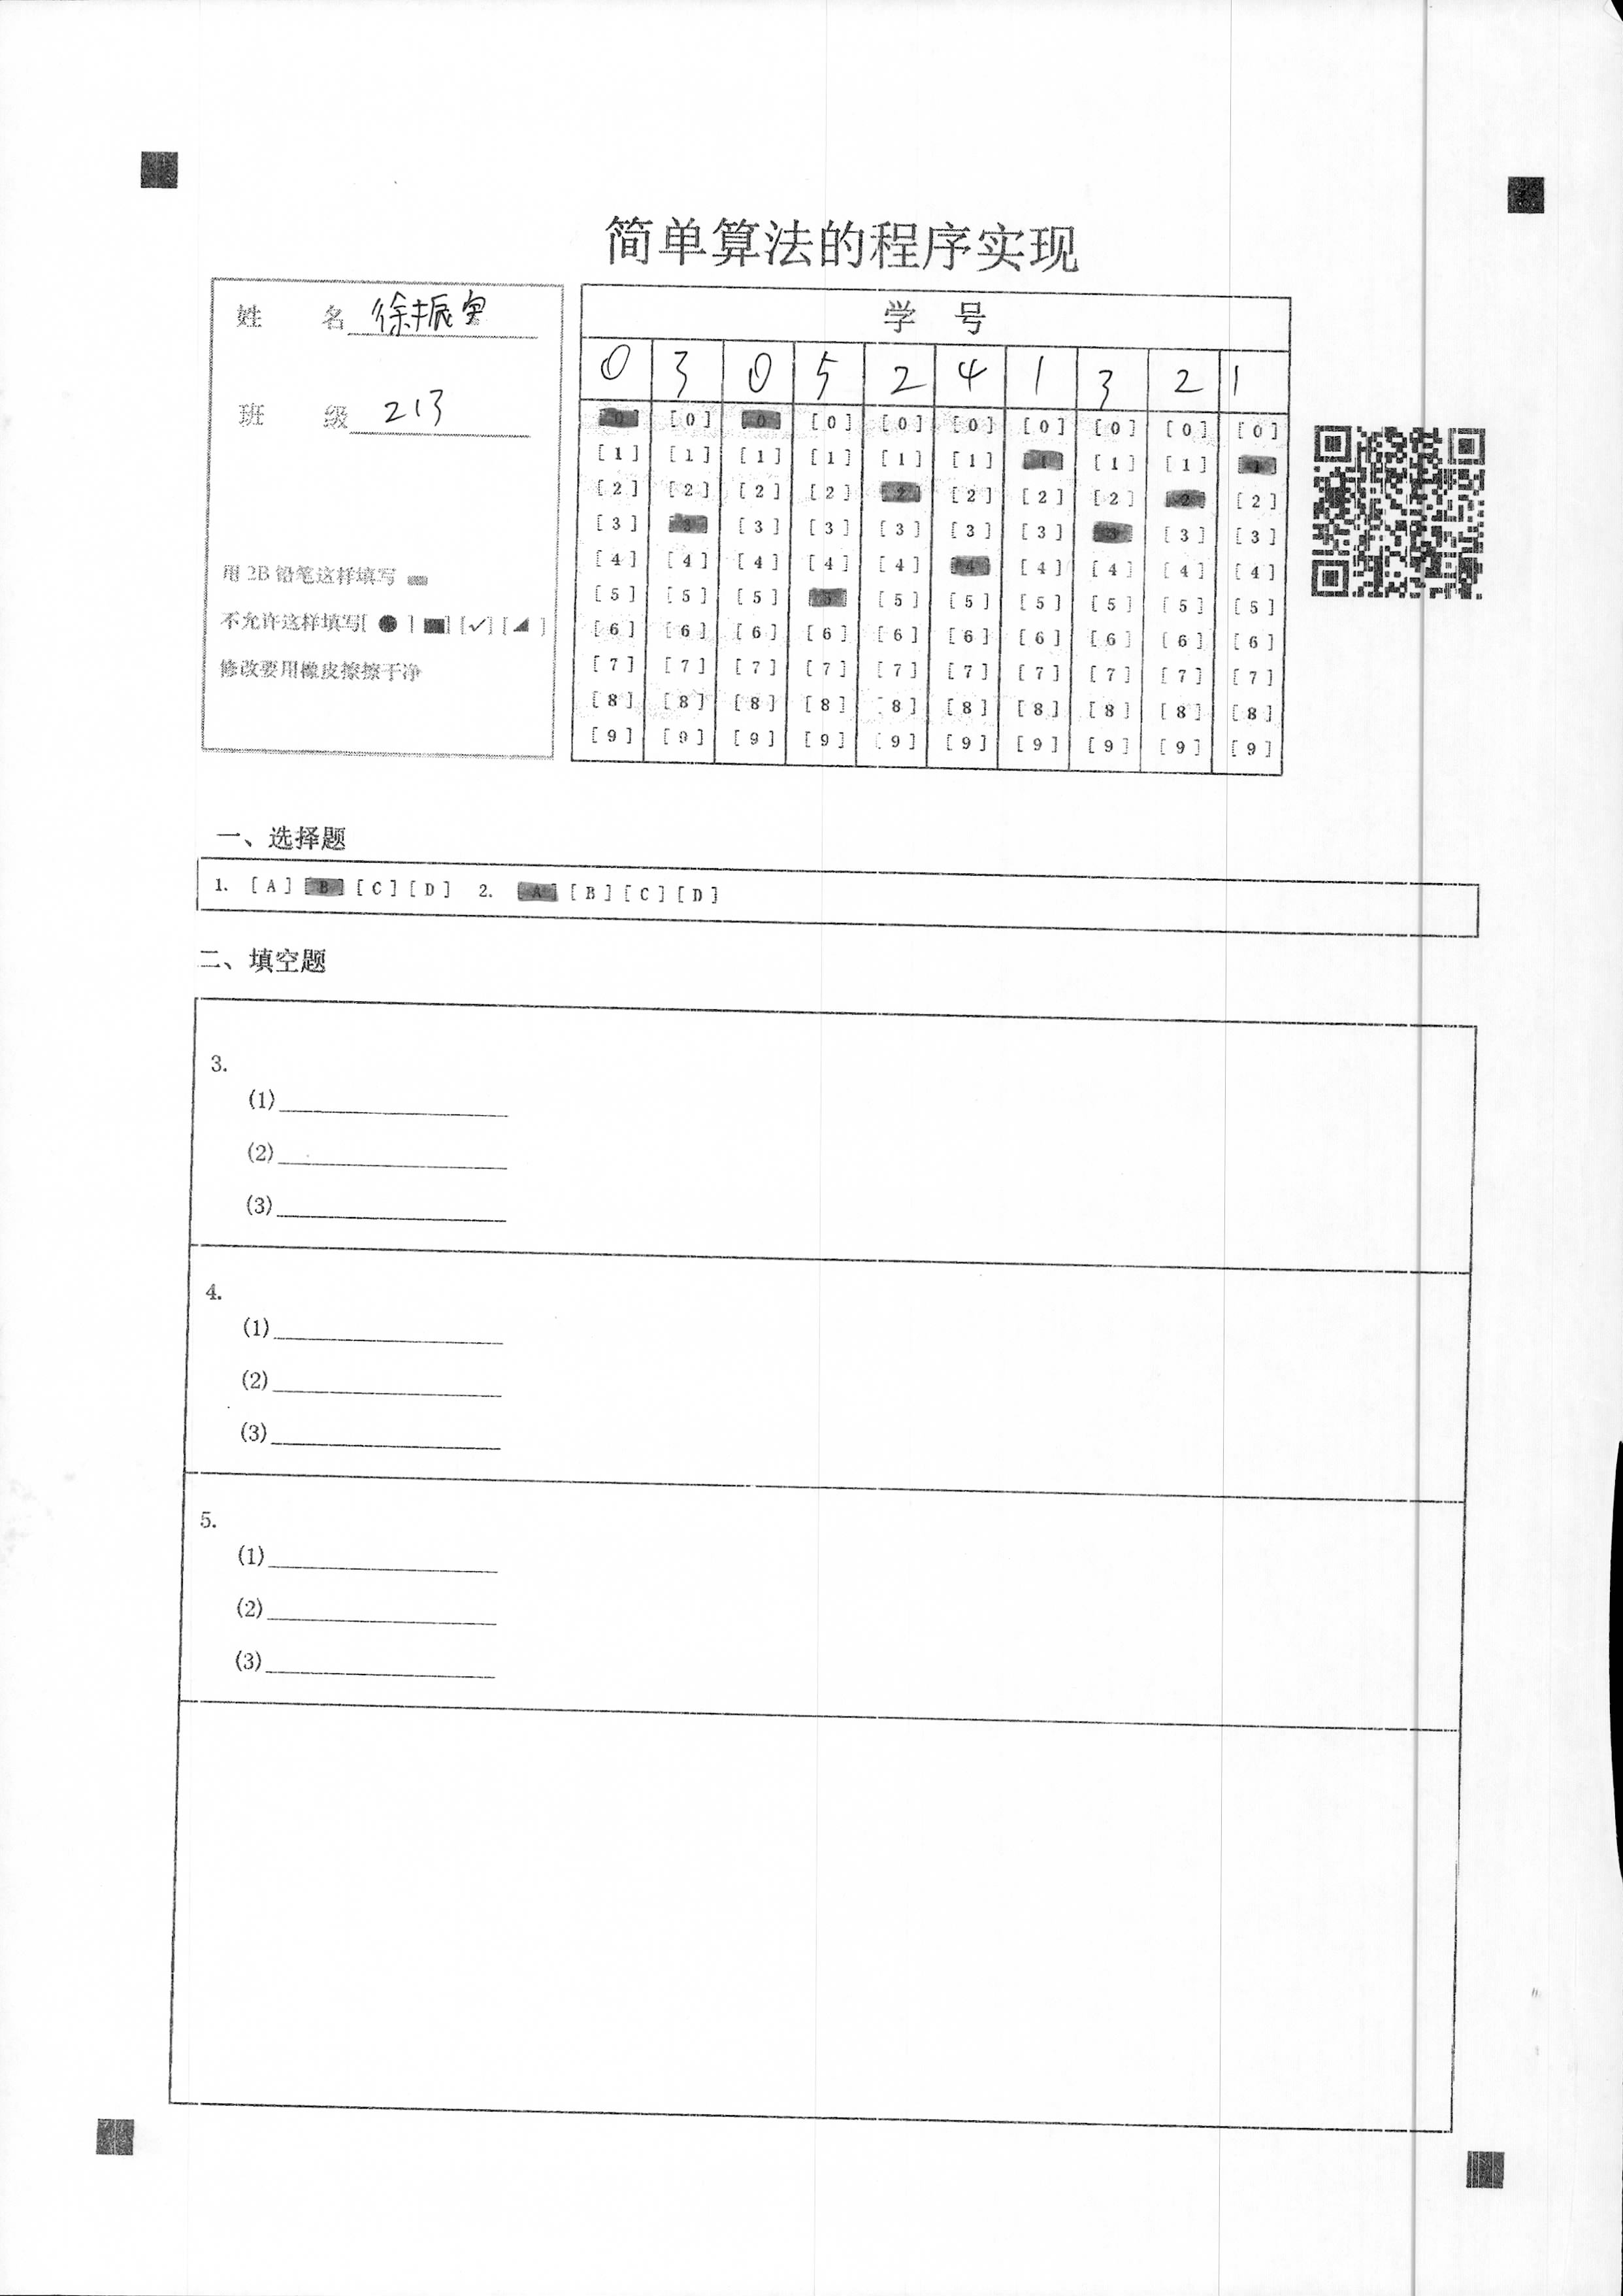 简单算法的程序实现
姓 名 徐振寅
班 级 213
用 2B 铅笔这样填写
不允许这样填写[ ● ] ■ [✓] [◢ ]
修改要用橡皮擦擦干净
学 号
0 3 0 5 2 4 1 3 2 1
[0] [0] [0] [0] [0] [0] [0] [0] [0] [0]
[1] [1] [1] [1] [1] [1] [1] [1] [1] [1]
[2] [2] [2] [2] [2] [2] [2] [2] [2] [2]
[3] [3] [3] [3] [3] [3] [3] [3] [3] [3]
[4] [4] [4] [4] [4] [4] [4] [4] [4] [4]
[5] [5] [5] [5] [5] [5] [5] [5] [5] [5]
[6] [6] [6] [6] [6] [6] [6] [6] [6] [6]
[7] [7] [7] [7] [7] [7] [7] [7] [7] [7]
[8] [8] [8] [8] [8] [8] [8] [8] [8] [8]
[9] [9] [9] [9] [9] [9] [9] [9] [9] [9]
一、选择题
1. [A] [B] [C] [D] 2. [A] [B] [C] [D]
二、填空题
3.
(1)
(2)
(3)
4.
(1)
(2)
(3)
5.
(1)
(2)
(3)